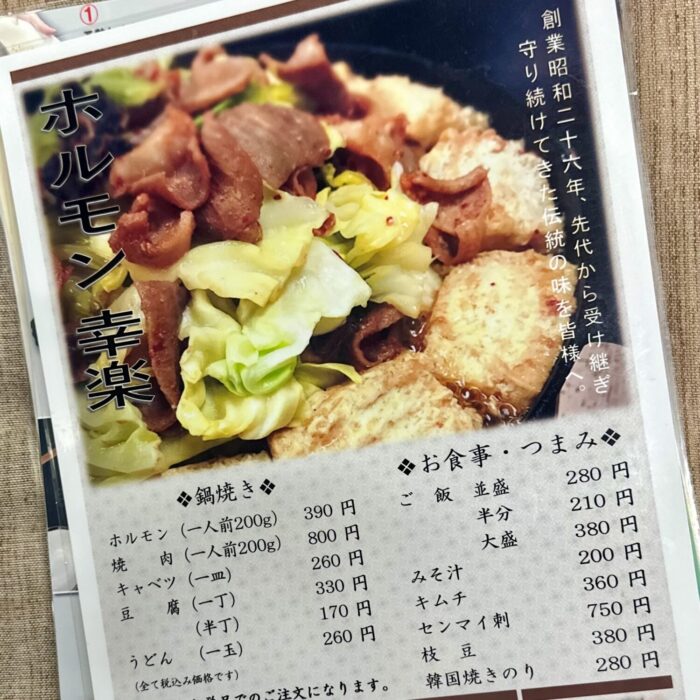 ①
ホルモン 幸楽
創業昭和二十六年、先代から受け継ぎ
守り続けてきた伝統の味を皆様へ。
❖鍋焼き❖
ホルモン (一人前200g) 390 円
焼 肉 (一人前200g) 800 円
キャベツ (一皿) 260 円
豆 腐 (一丁) 330 円
(半丁) 170 円
うどん (一玉) 260 円
(全て税込み価格です)
単品でのご注文になります。
❖お食事・つまみ❖
ご 飯 並盛 280 円
半分 210 円
大盛 380 円
みそ汁 200 円
キムチ 360 円
センマイ刺 750 円
枝 豆 380 円
韓国焼きのり 280 円